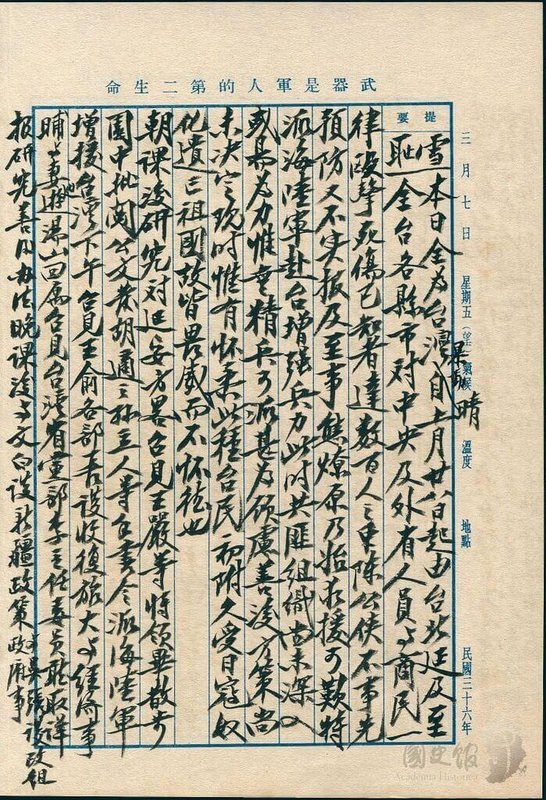 武器是軍人的第二生命
提要
三月七日 星期五（望） 氣候 晴 溫度 地點 民國三十六年
雪恥 本日全為台灣暴動自上月廿八日起由台北延及至
全台各縣市對中央及外省人員與商民一
律毆擊死傷已知者達數百人之眾陳公俠不事先
預防又不实报及至事態燎原乃始求援可歎特
派海陸軍赴台增強兵力此時共匪組織尚未深入
或易為力惟無精兵可派甚為顧慮善後方策尚
未決定現時惟有懷柔此種台民初附久受日寇奴
化遺忘祖國故皆畏威而不懷德也
朝課後研究對延安方略召見王嚴等將領畢散步
園中批閱公文發胡適之孫立人等各書令派海陸軍
增援台灣下午召見王俞各部長談收復旅大與經濟事
晡與妻遊湯山回寓召見台灣省黨部李主任委員聽取詳
报研究善後办法晚課後與文白談新疆政策
與吳張談改組政府事
國史館
Academia Historica